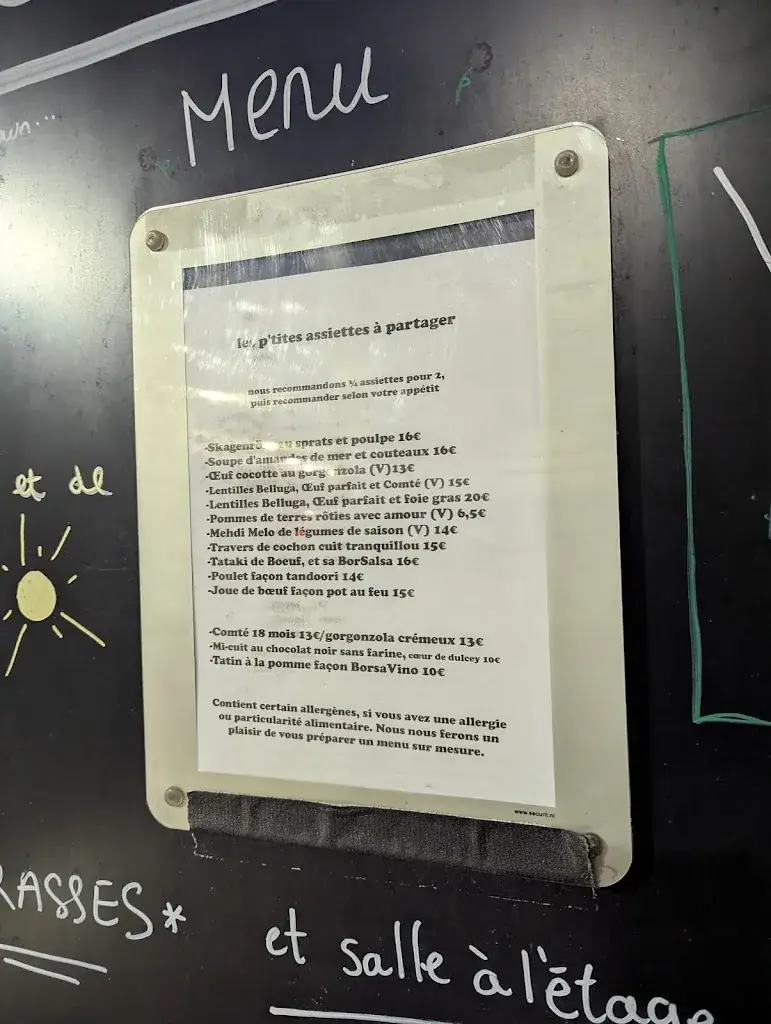 Menu
les p'tites assiettes à partager
nous recommandons ¾ assiettes pour 2,
puis recommander selon votre appétit
-Skagenrö au sprats et poulpe 16€
-Soupe d'amandes de mer et couteaux 16€
-Œuf cocotte au gorgonzola (V)13€
-Lentilles Belluga, Œuf parfait et Comté (V) 15€
-Lentilles Belluga, Œuf parfait et foie gras 20€
-Pommes de terres rôties avec amour (V) 6,5€
-Mehdi Melo de légumes de saison (V) 14€
-Travers de cochon cuit tranquillou 15€
-Tataki de Boeuf, et sa BorSalsa 16€
-Poulet façon tandoori 14€
-Joue de bœuf façon pot au feu 15€
-Comté 18 mois 13€/gorgonzola crémeux 13€
-Mi-cuit au chocolat noir sans farine, cœur de dulcey 10€
-Tatin à la pomme façon BorsaVino 10€
Contient certain allergènes, si vous avez une allergie
ou particularité alimentaire. Nous nous ferons un
plaisir de vous préparer un menu sur mesure.
www.securit.nl
et de
RASSES*
et salle à l'étage